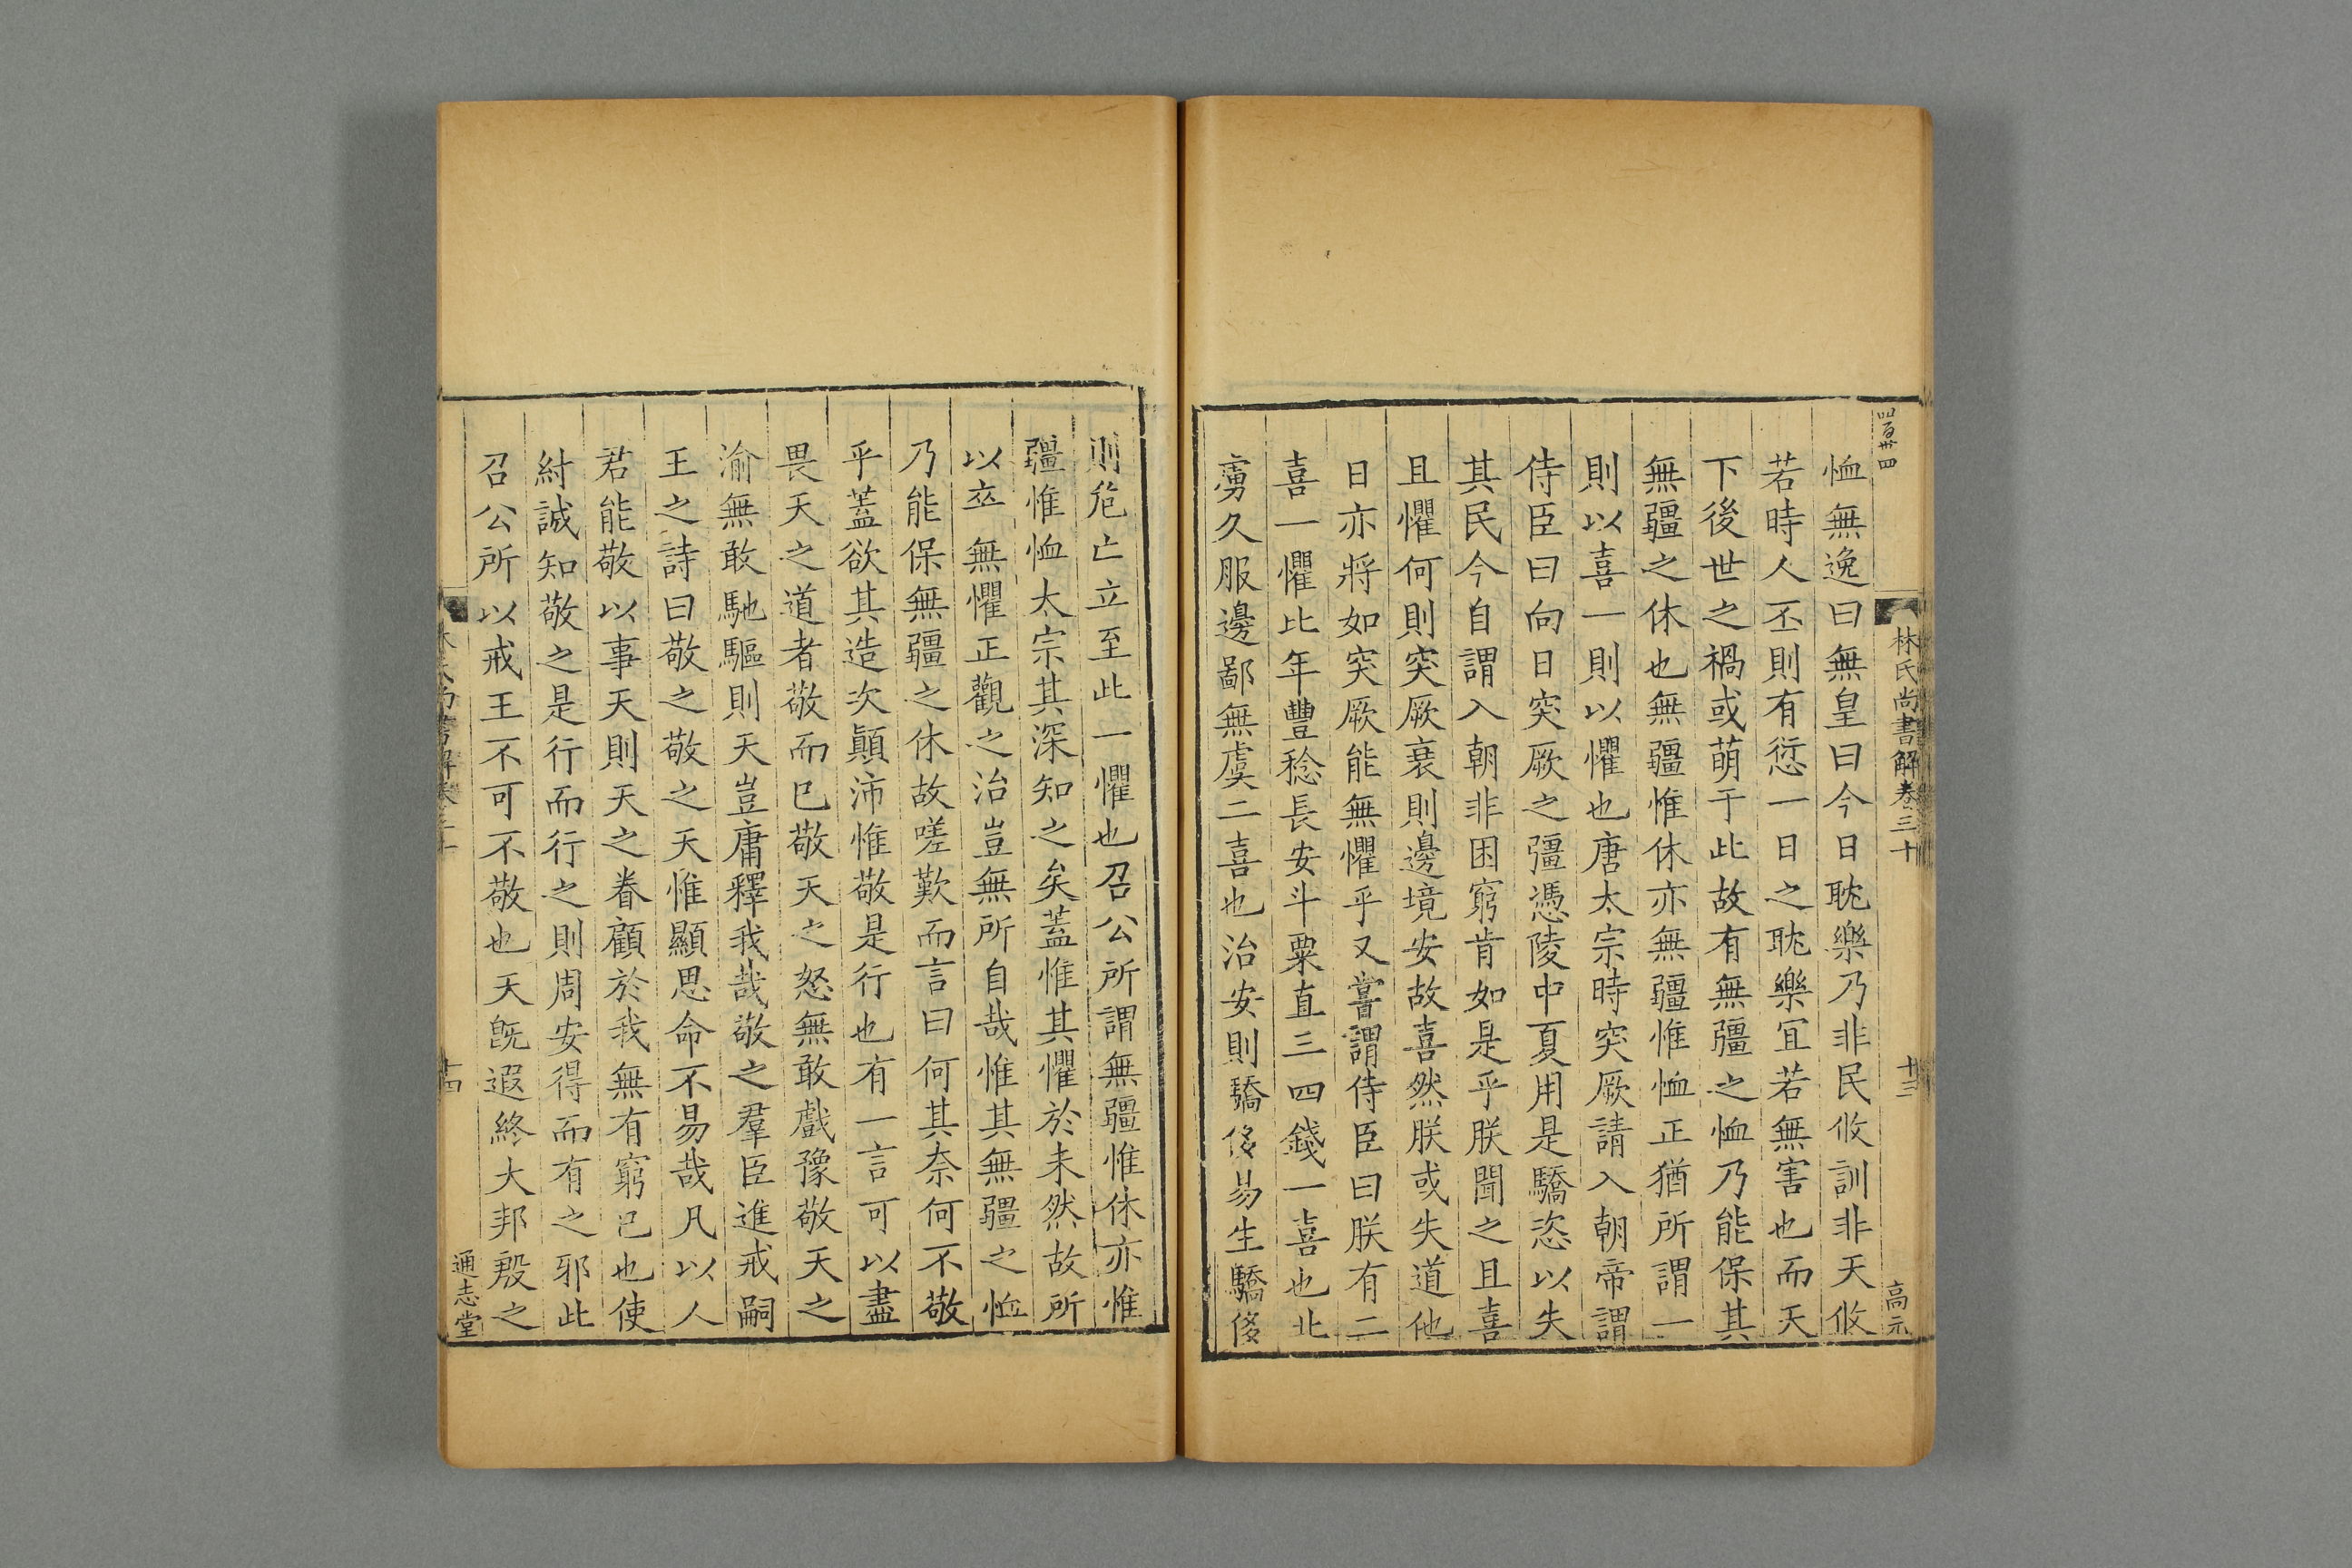 林氏尚書解卷三十
十三
高元
恤無逸曰無皇曰今日耽樂乃非民攸訓非天攸
若時人丕則有愆一日之耽樂宜若無害也而天
下後世之禍或萌于此故有無疆之恤乃能保其
無疆之休也無疆惟休亦無疆惟恤正猶所謂一
則以喜一則以懼也唐太宗時突厥請入朝帝謂
侍臣曰向日突厥之彊憑陵中夏用是驕恣以失
其民今自謂入朝非困窮肯如是乎朕聞之且喜
且懼何則突厥衰則邊境安故喜然朕或失道他
日亦將如突厥能無懼乎又嘗謂侍臣曰朕有二
喜一懼比年豐稔長安斗粟直三四錢一喜也北
虜久服邊鄙無虞二喜也治安則驕侈易生驕侈
則危亡立至此一懼也召公所謂無疆惟休亦惟
疆惟恤太宗其深知之矣蓋惟其懼於未然故所
以卒無懼正觀之治豈無所自哉惟其無疆之恤
乃能保無疆之休故嗟歎而言曰何其奈何不敬
乎蓋欲其造次顛沛惟敬是行也有一言可以盡
畏天之道者敬而已敬天之怒無敢戲豫敬天之
渝無敢馳驅則天豈庸釋我哉敬之羣臣進戒嗣
王之詩曰敬之敬之天惟顯思命不易哉凡以人
君能敬以事天則天之眷顧於我無有窮已也使
紂誠知敬之是行而行之則周安得而有之邪此
召公所以戒王不可不敬也天既遐終大邦殷之
十四
通志堂